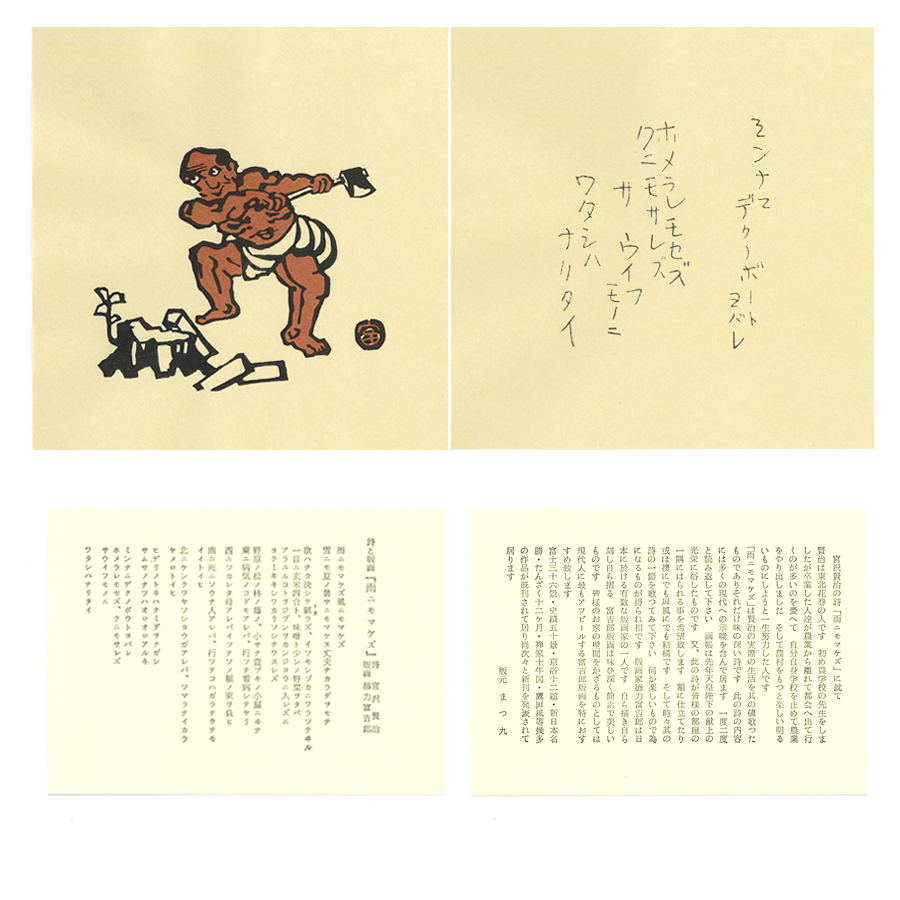 ミンナニ
デクノボートヨバレ
ホメラレモセズ
クニモサレズ
サウイフモノニ
ワタシハ
ナリタイ
詩と版画『雨ニモマケズ』
詩 宮沢賢治
版画 徳力富吉郎
雨ニモマケズ風ニモマケズ
雪ニモ夏ノ暑サニモマケヌ丈夫ナカラダヲモチ
欲ハナク決シテ瞋ラズ、イツモシヅカニワラツテヰル
一日ニ玄米四合ト、味噌ト少シノ野菜ヲタベ
アラユルコトヲジブンヲカンジヨウニ入レズニ
ヨクミキキシワカリソシテワスレズ
野原ノ松ノ林ノ蔭ノ、小サナ萱ブキノ小屋ニヰテ
東ニ病気ノコドモアレバ、行ツテ看病シテヤリ
西ニツカレタ母アレバイツテソノ稲ノ束ヲ負ヒ
南ニ死ニソウナ人アレバ、行ツテコハガラナクテモ
イイトイヒ
北ニケンクワヤソシヨウガアレバ、ツマラナイカラ
ヤメロトイヒ
ヒデリノトキハナミダヲナガシ
サムサノナツハオロオロアルキ
ミンナニデクノボウトヨバレ
ホメラレモセズ、クニモサレズ
サウイフモノニ
ワタシハナリタイ
宮沢賢治の詩「雨ニモマケズ」に就て
賢治は東北花巻の人です 初め農学校の先生をしま
したが卒業した人達が農業から離れて都会へ出て行
くのが多いのを憂へて 自分自身学校を止めて農業
をやり出しました そして農村をもつと楽しい明る
いものにしようと一生努力した人です
『雨ニモマケズ』は賢治の実際の生活を其の儘歌つた
ものでありそれだけ味の深い詩です 此の詩の内容
には多くの現代への示唆を含んで居ます 一度二度
と読み返して下さい 画帳は先年天皇陛下の献上の
光栄に浴したものです 又、此の詩が皆様の部屋の
一隅にはられる事を希望致します 額に仕立てたり
或は襖にでも屏風にでも結構です そして時々其の
詩の一節を歌つてみて下さい 何か楽しいもので為
になるものが得られ相です 版画家徳力富吉郎は日
本に於ける有数な版画家の一人です 自ら描き自ら
刻し自ら摺る 富吉郎版画は味ひ深く簡素で美しい
ものです 皆様のお家の壁間をかざるものとしては
現代人に最もアツピールする富吉郎版画を特におす
すめ致します
富士三十六景・史蹟五十景・京洛十二題・新日本名
勝・たんざく十二ケ月・禅家十牛図・鷹屏風等幾多
の作品が既刊されて居り尚次々と新刊を発表されて
居ります
版元 まつ九